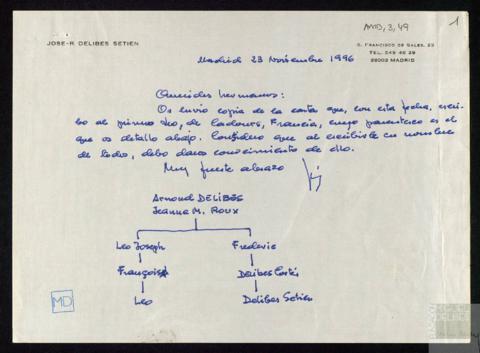 AMD, 3, 49
1
JOSE-R DELIBES SETIEN
S. FRANCISCO DE SALES, 23
TEL. 549 46 29
28003 MADRID
Madrid 23 Noviembre 1996
Queridos hermanos:
Os envío copia de la carta que, con esta fecha, escri-
bo al primo Leo, de Cadours, Francia, cuyo parentesco es el
que os detallo abajo. Considero que al escribirle en nombre
de todos, debo daros conocimiento de ello.
Muy fuerte abrazo
Arnoud DELIBES
Jeanne M. ROUX
Leo Joseph Frederic
François Delibes Cortés
Leo Delibes Setien
MD
DELIBES